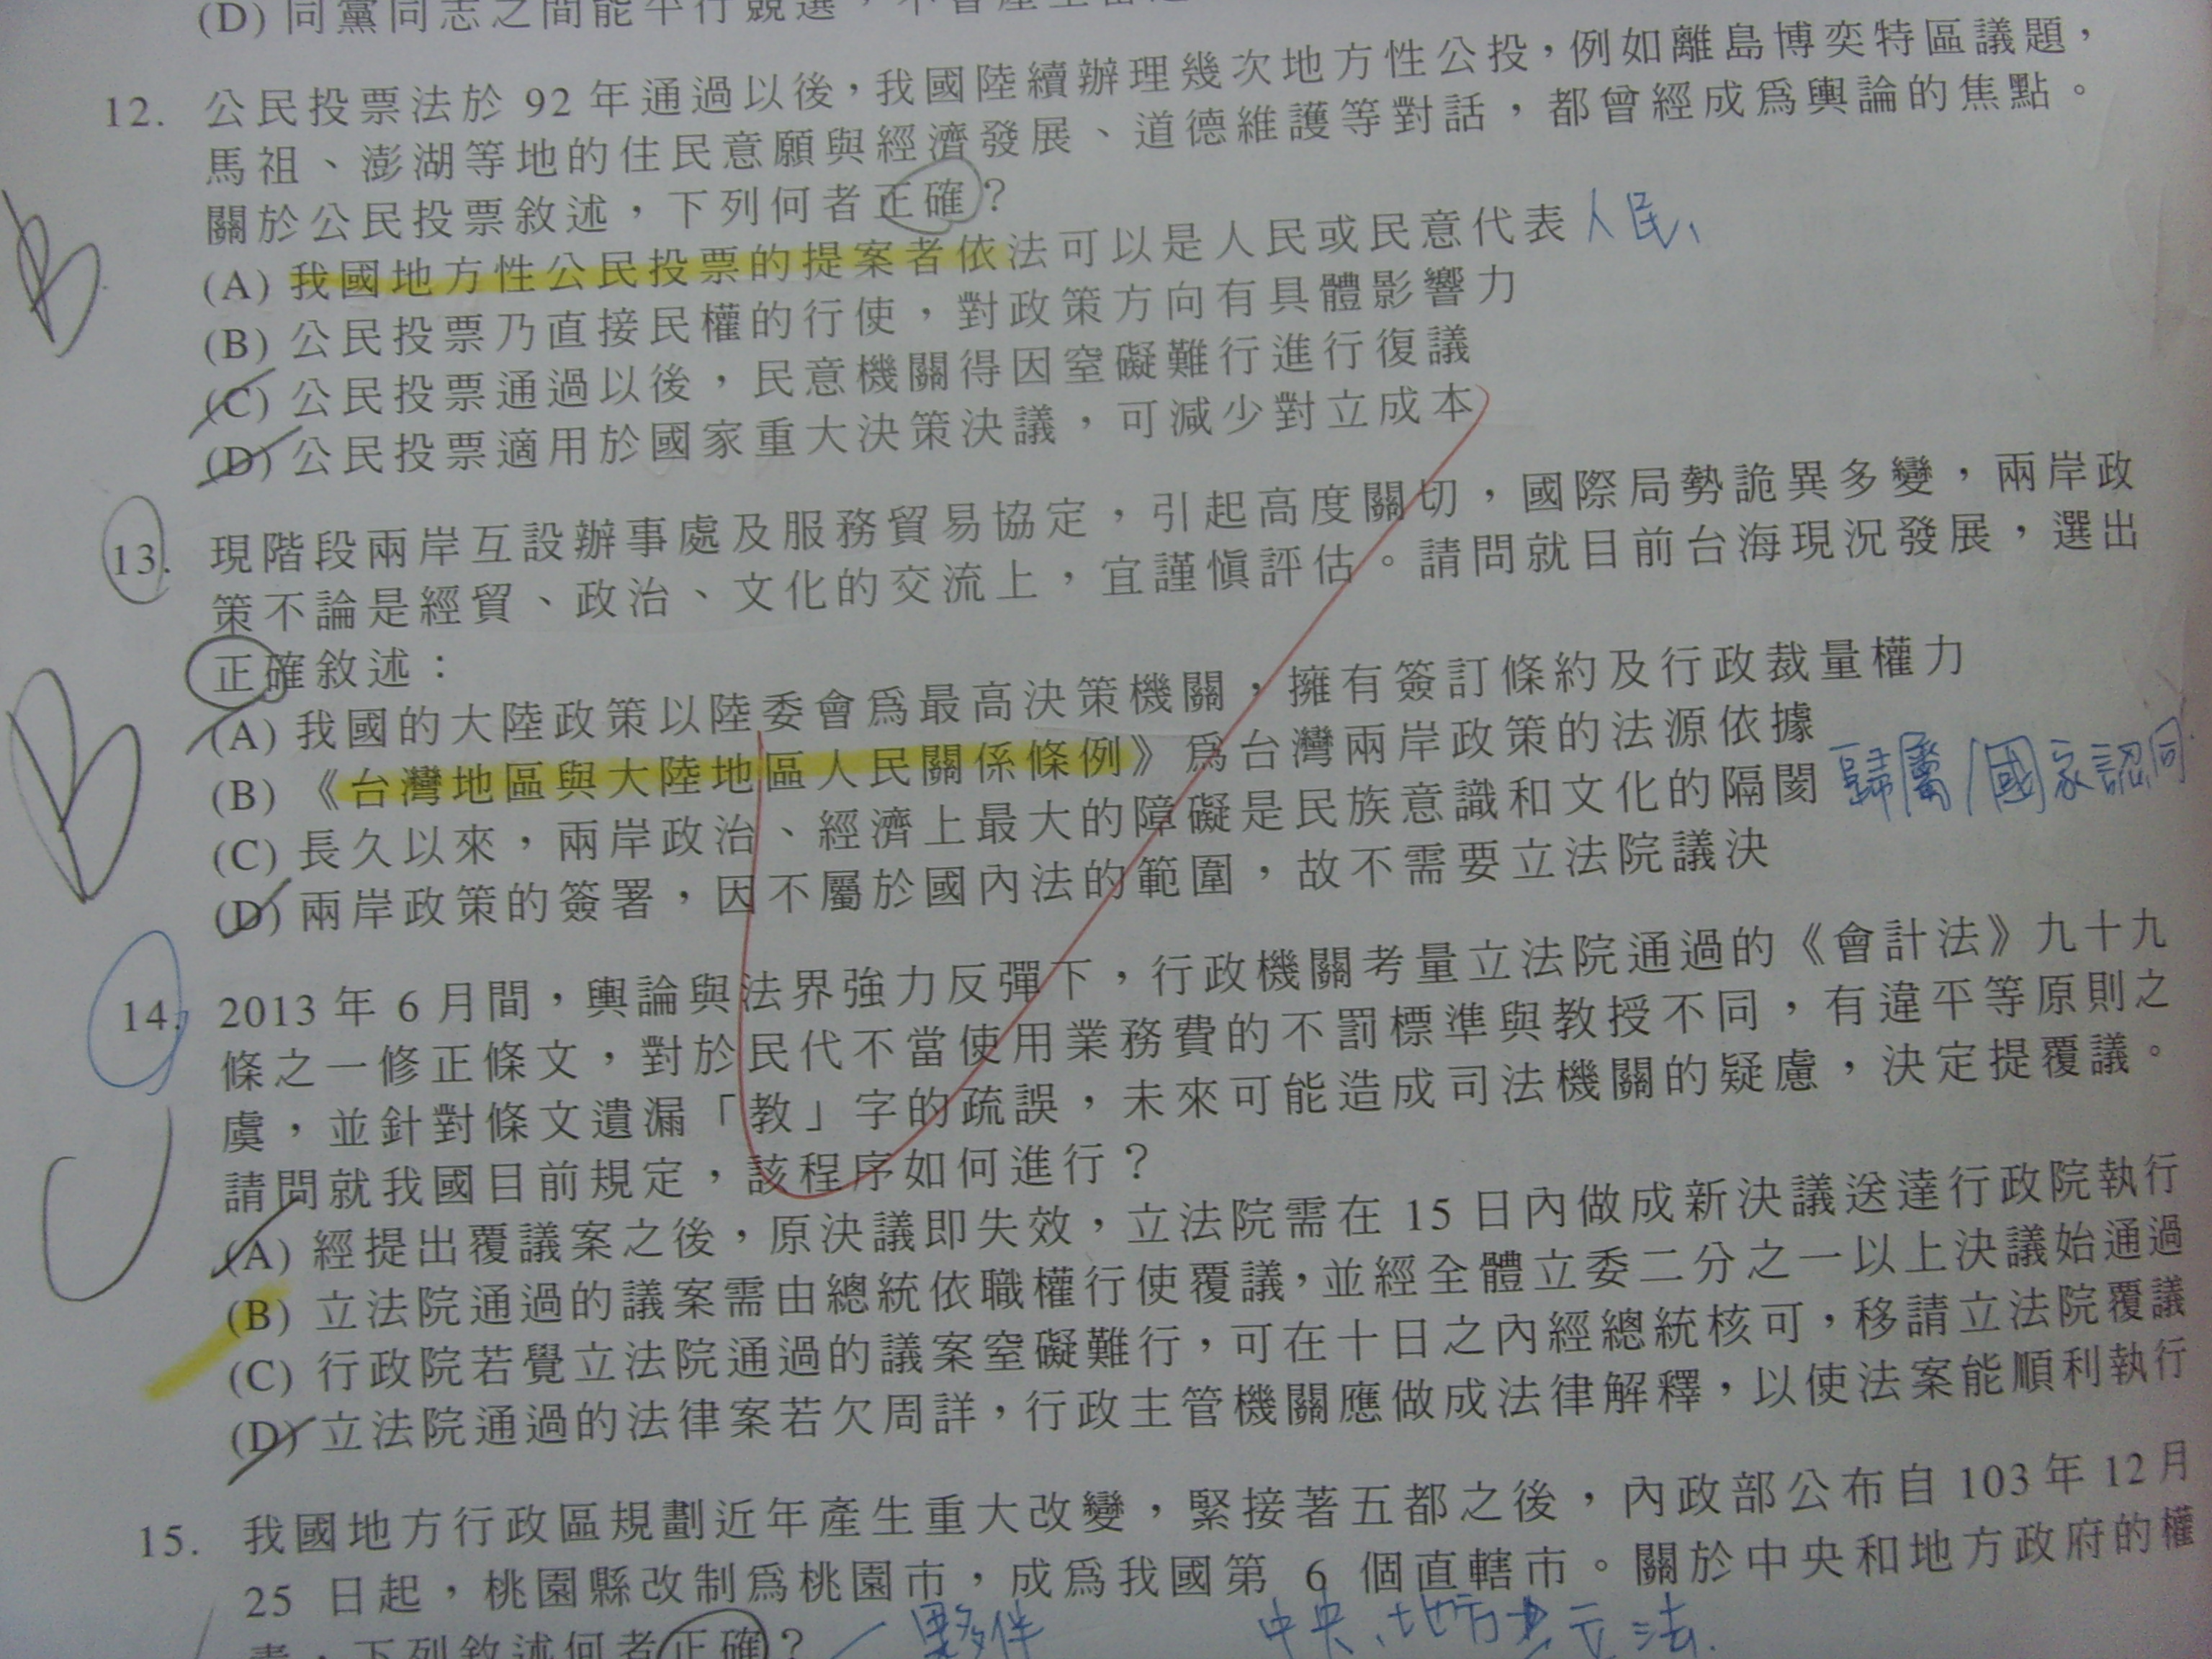 (D) 同黨同志之間能平行競選，不會產生
12. 公民投票法於 92 年通過以後，我國陸續辦理幾次地方性公投，例如離島博奕特區議題，
馬祖、澎湖等地的住民意願與經濟發展、道德維護等對話，都曾經成為輿論的焦點。
關於公民投票敘述，下列何者正確？
(A) 我國地方性公民投票的提案者依法可以是人民或民意代表 人民、
(B) 公民投票乃直接民權的行使，對政策方向有具體影響力
(C) 公民投票通過以後，民意機關得因窒礙難行進行復議
(D) 公民投票適用於國家重大決策決議，可減少對立成本
B
13. 現階段兩岸互設辦事處及服務貿易協定，引起高度關切，國際局勢詭異多變，兩岸政
策不論是經貿、政治、文化的交流上，宜謹慎評估。請問就目前台海現況發展，選出
正確敘述：
(A) 我國的大陸政策以陸委會為最高決策機關，擁有簽訂條約及行政裁量權力
(B) 《台灣地區與大陸地區人民關係條例》為台灣兩岸政策的法源依據
(C) 長久以來，兩岸政治、經濟上最大的障礙是民族意識和文化的隔閡 歸屬/國家認同
(D) 兩岸政策的簽署，因不屬於國內法的範圍，故不需要立法院議決
B
14. 2013 年 6 月間，輿論與法界強力反彈下，行政機關考量立法院通過的《會計法》九十九
條之一修正條文，對於民代不當使用業務費的不罰標準與教授不同，有違平等原則之
虞，並針對條文遺漏「教」字的疏誤，未來可能造成司法機關的疑慮，決定提覆議。
請問就我國目前規定，該程序如何進行？
(A) 經提出覆議案之後，原決議即失效，立法院需在 15 日內做成新決議送達行政院執行
(B) 立法院通過的議案需由總統依職權行使覆議，並經全體立委二分之一以上決議始通過
(C) 行政院若覺立法院通過的議案窒礙難行，可在十日之內經總統核可，移請立法院覆議
(D) 立法院通過的法律案若欠周詳，行政主管機關應做成法律解釋，以使法案能順利執行
15. 我國地方行政區規劃近年產生重大改變，緊接著五都之後，內政部公布自 103 年 12 月
25 日起，桃園縣改制為桃園市，成為我國第 6 個直轄市。關於中央和地方政府的權
責，下列敘述何者正確？ 夥伴 中央、地方 立法